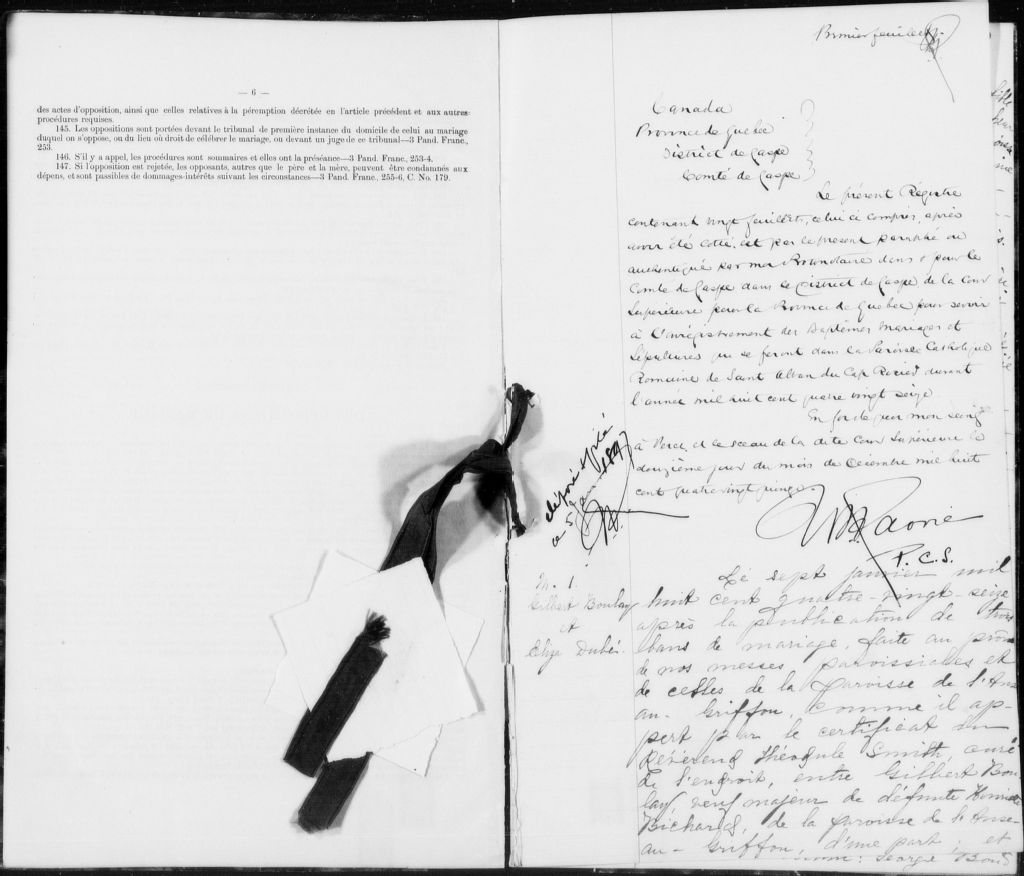 — 6 —
des actes d'opposition, ainsi que celles relatives à la péremption décrétée en l'article précédent et aux autres
procédures requises.
145. Les oppositions sont portées devant le tribunal de première instance du domicile de celui au mariage
duquel on s'oppose, ou du lieu où droit de célébrer le mariage, ou devant un juge de ce tribunal—3 Pand. Franc.,
253.
146. S'il y a appel, les procédures sont sommaires et elles ont la préséance—3 Pand. Franc., 253-4.
147. Si l'opposition est rejetée, les opposants, autres que le père et la mère, peuvent être condamnés aux
dépens, et sont passibles de dommages-intérêts suivant les circonstances—3 Pand. Franc., 255-6, C. No. 179.
Premier feuillet
Canada
Province de Quebec
District de Gaspé
Comté de Gaspé
Le présent Régistre
contenant vingt feuillets, celui ci compris, après
avoir été cotté, est par le present paraphé ou
authentiqué par moi Protonotaire dans & pour le
Comte de Gaspé dans le District de Gaspé de la Cour
Superieure pour la Province de Quebec pour servir
à l'enrégistrement des Baptêmes Mariages et
Sépultures qui se feront dans la Paroisse Catholique
Romaine de Saint Alban du Cap Rozier durant
l'année mil huit cent quatre vingt seize.
En foi de quoi mon seing
à Percé, et le sceau de la dite Cour Supérieure le
douzième jour du mois de Décembre mil huit
cent quatre vingt quinze.
P.C.S.
déposé & filé
ce 5 Jan 1897
M. 1.
Gilbert Boulay
et
Eliza Dubé.
Le sept janvier mil
huit cent quatre-vingt-seize
après la publication de trois
bans de mariage, faite au prône
de nos messes paroissiales et
de celles de la paroisse de l'Anse-
au-Griffon, comme il ap-
pert par le certificat du
Révérend Théodule Smith, curé
de l'endroit, entre Gilbert Bou-
lay, veuf majeur de défunte
Richard, de la paroisse de l'Anse-
au-Griffon, d'une part; et
George Bond